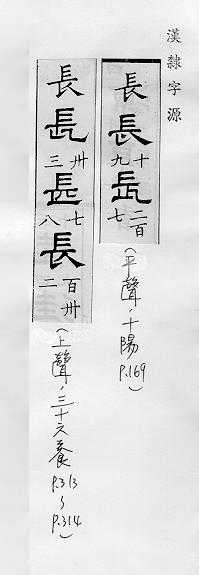 漢隸字源
長長十九長二百七(平聲、十陽 P.169)
長長卅三長七八長百卅二(上聲、三十六養 P.313~P.314)